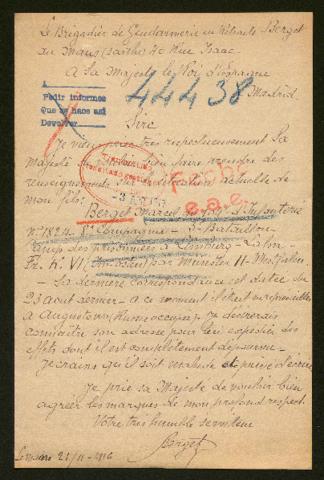 Le Brigadier de Gendarmerie en Retraite Berget
au Mans (Sarthe) 40 Rue Isaac.
A Sa Majesté le Roi d'Espagne
Madrid
Pedir informes
Que se hace así
Devolver
44438
Sire
Je viens prier très respectueusement Sa
Majesté de vouloir bien faire prendre des
renseignements sur la situation actuelle de
mon fils
Fecho
e.a.e.
Berget Marcel d'Infanterie
N° 1824 8e Compagnie - 3e Bataillon
Camp des prisonniers à Limburg-Lahn
par Munster II - Westfalien
Sa dernière correspondance est datée du
23 août dernier - à ce moment il était en représailles
à Augustowo (Russie occupée). Je désirerais
connaître son adresse pour lui expédier des
effets dont il est complètement dépourvu -
Je crains qu'il soit malade et privé d'écrire
Je prie Sa Majesté de vouloir bien
agréer les marques de mon profond respect.
Votre très humble serviteur
Berget
Le Mans 21/11-1916